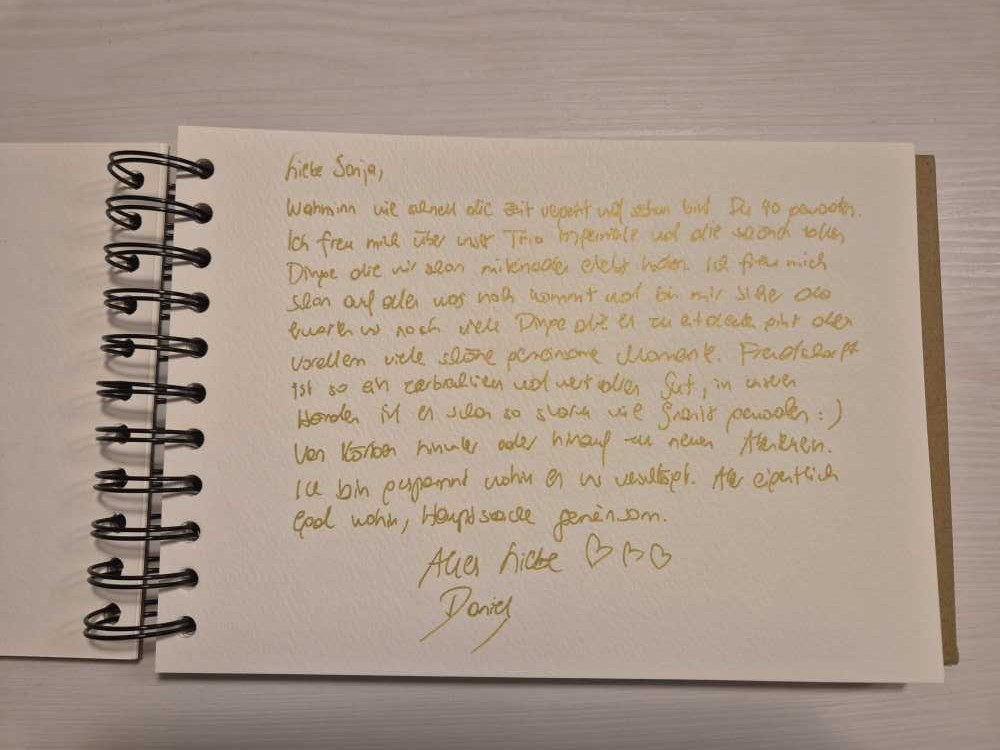 Liebe Sonja,
Wahnsinn wie schnell die Zeit vergeht und schon bist Du 40 geworden.
Ich freu mich über unser Trio und die tollen
Dinge die wir schon miteinander erlebt haben. Ich freu mich
schon auf alles was noch kommt und bin mir sicher
erwarten uns noch viele Dinge die es zu entdecken gibt aber
vorallem viele schöne gemeinsame Momente. Freundschaft
ist so ein zerbrechlichen und wertvolles Gut, in unseren
Händen ist es schon so stark wie Granit geworden :)
Von hinunter oder hinauf zu neuen
Ich bin gespannt wohin es uns verschlägt. Aber eigentlich
Egal wohin, Hauptsache gemeinsam.
Alles Liebe ♡♡♡
Daniel